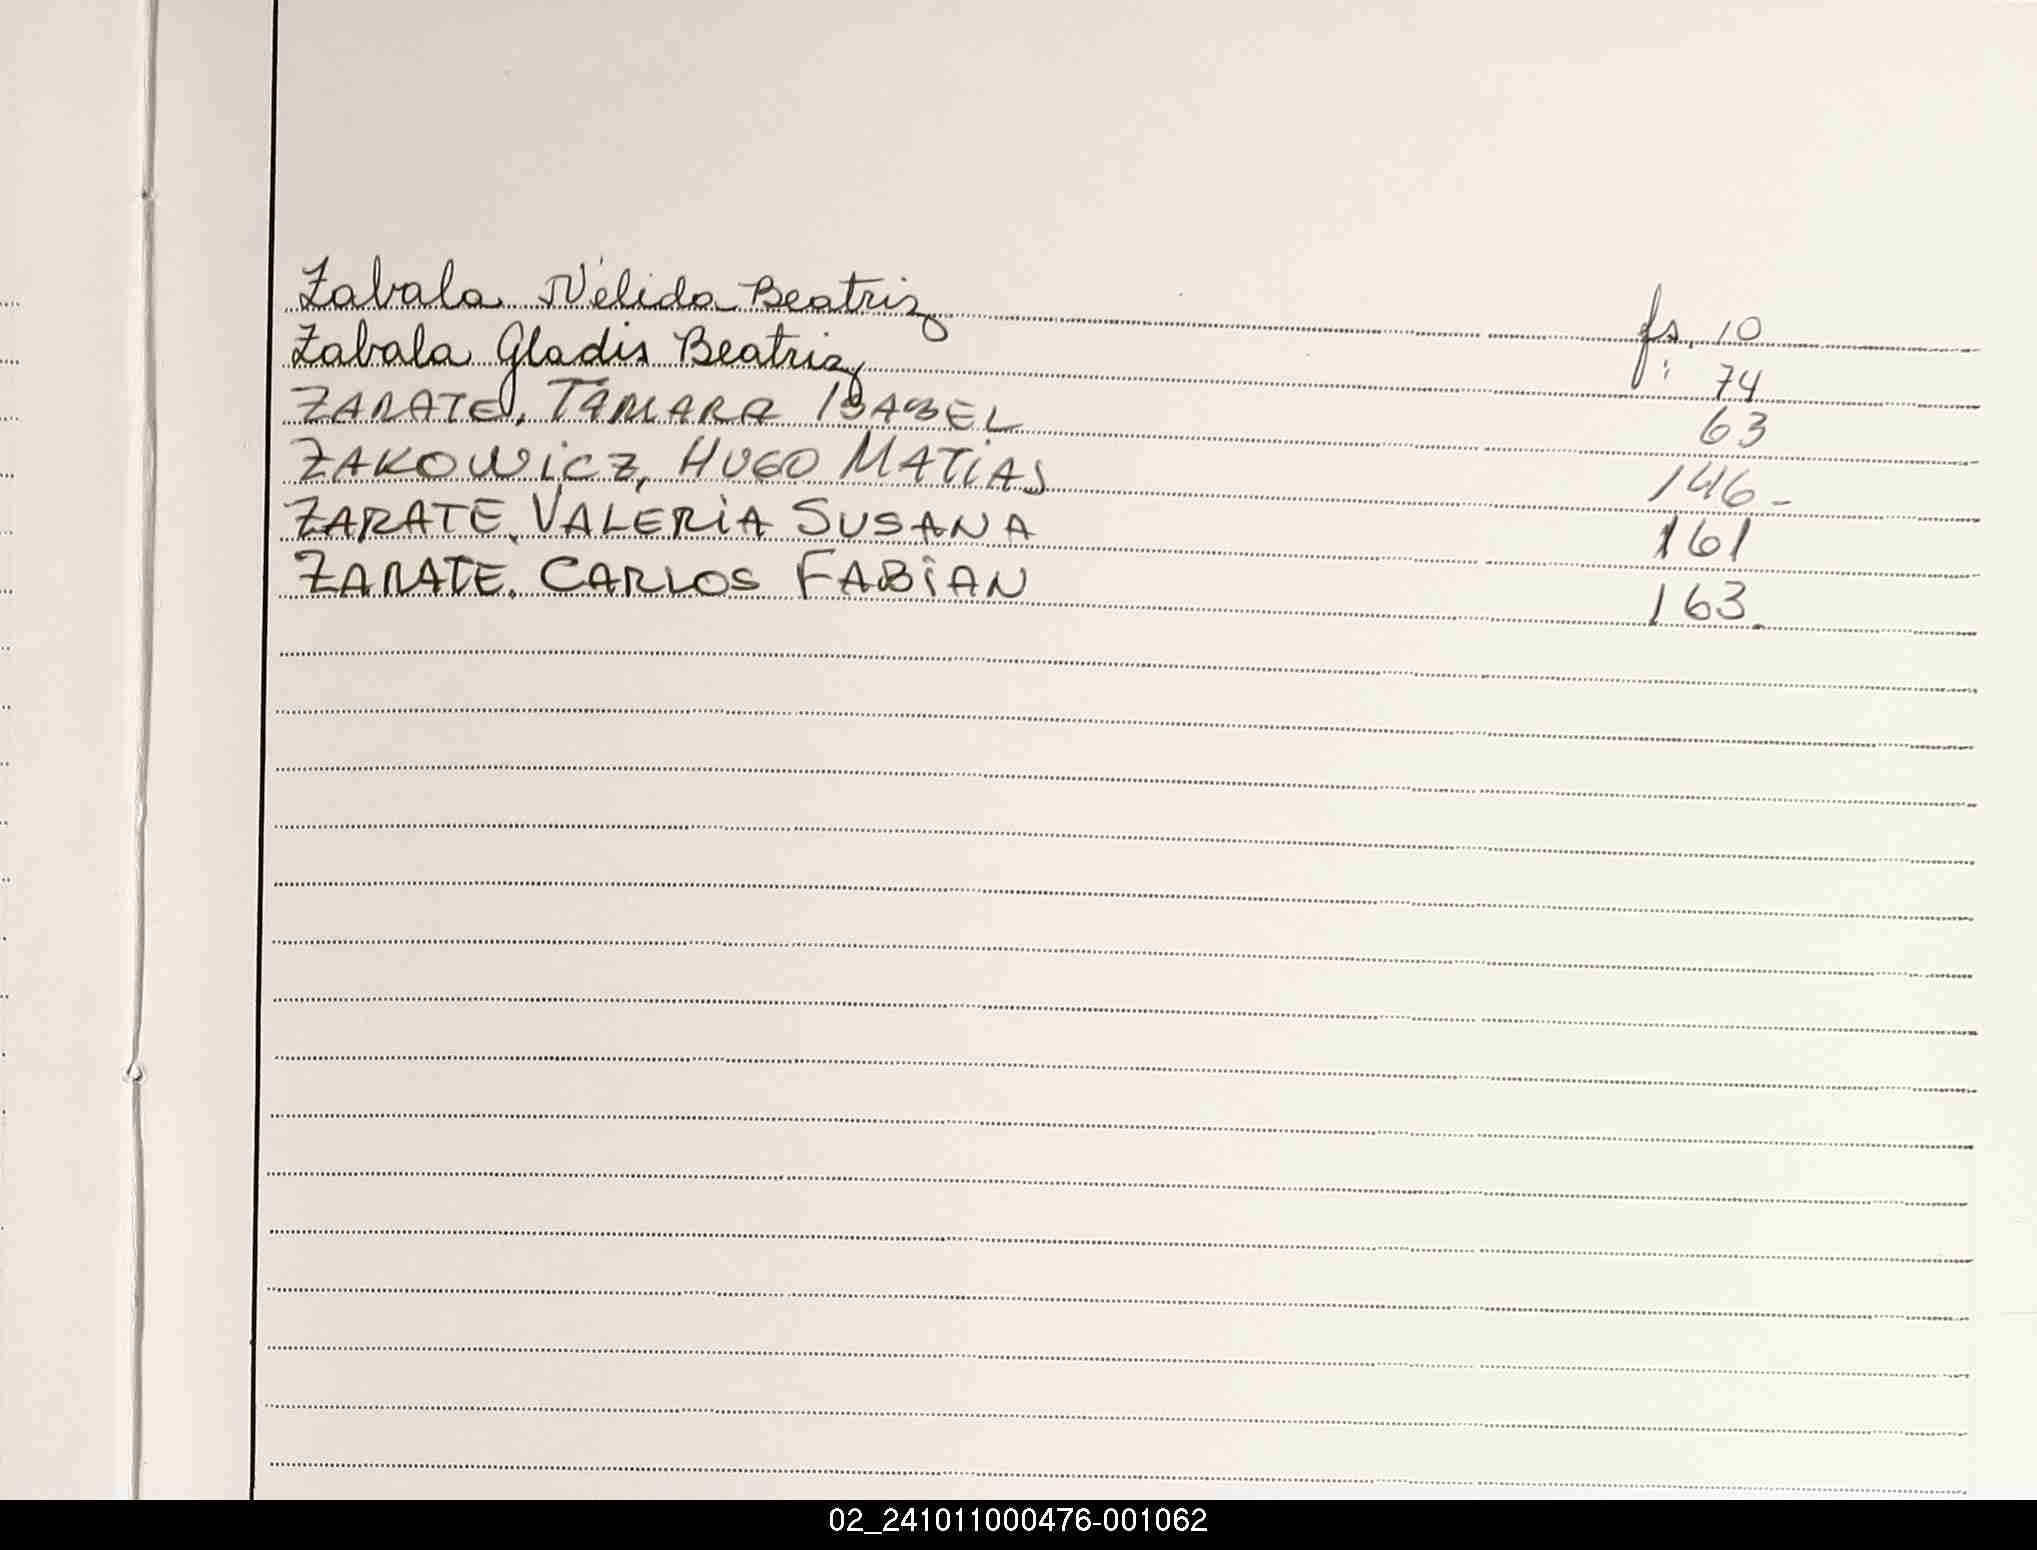 Zabala Nélida Beatriz fs. 10
Zabala Gladis Beatriz f: 74
ZARATE, TAMARA ISABEL 63
ZAKOWICZ, HUGO MATIAS 146-
ZARATE, VALERIA SUSANA 161
ZARATE. CARLOS FABIAN 163.
02_241011000476-001062